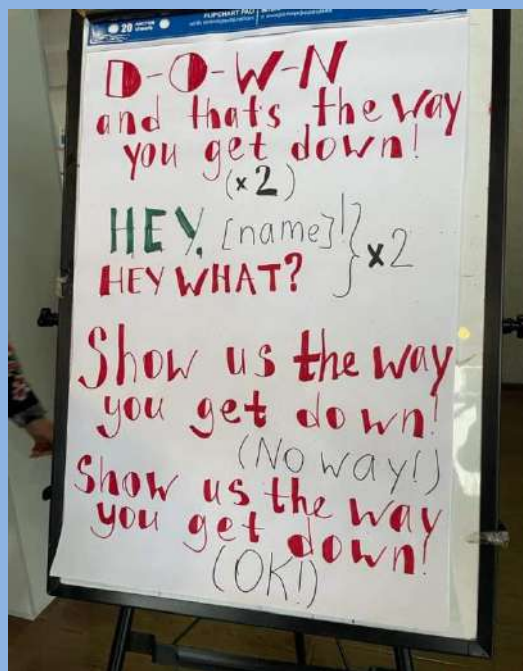 20 FLIPCHART PAD
D-O-W-N
and thats the way
you get down!
(x2)
HEY, [name]! } x2
HEY WHAT?
Show us the way
you get down!
(No way!)
Show us the way
you get down!
(OK!)